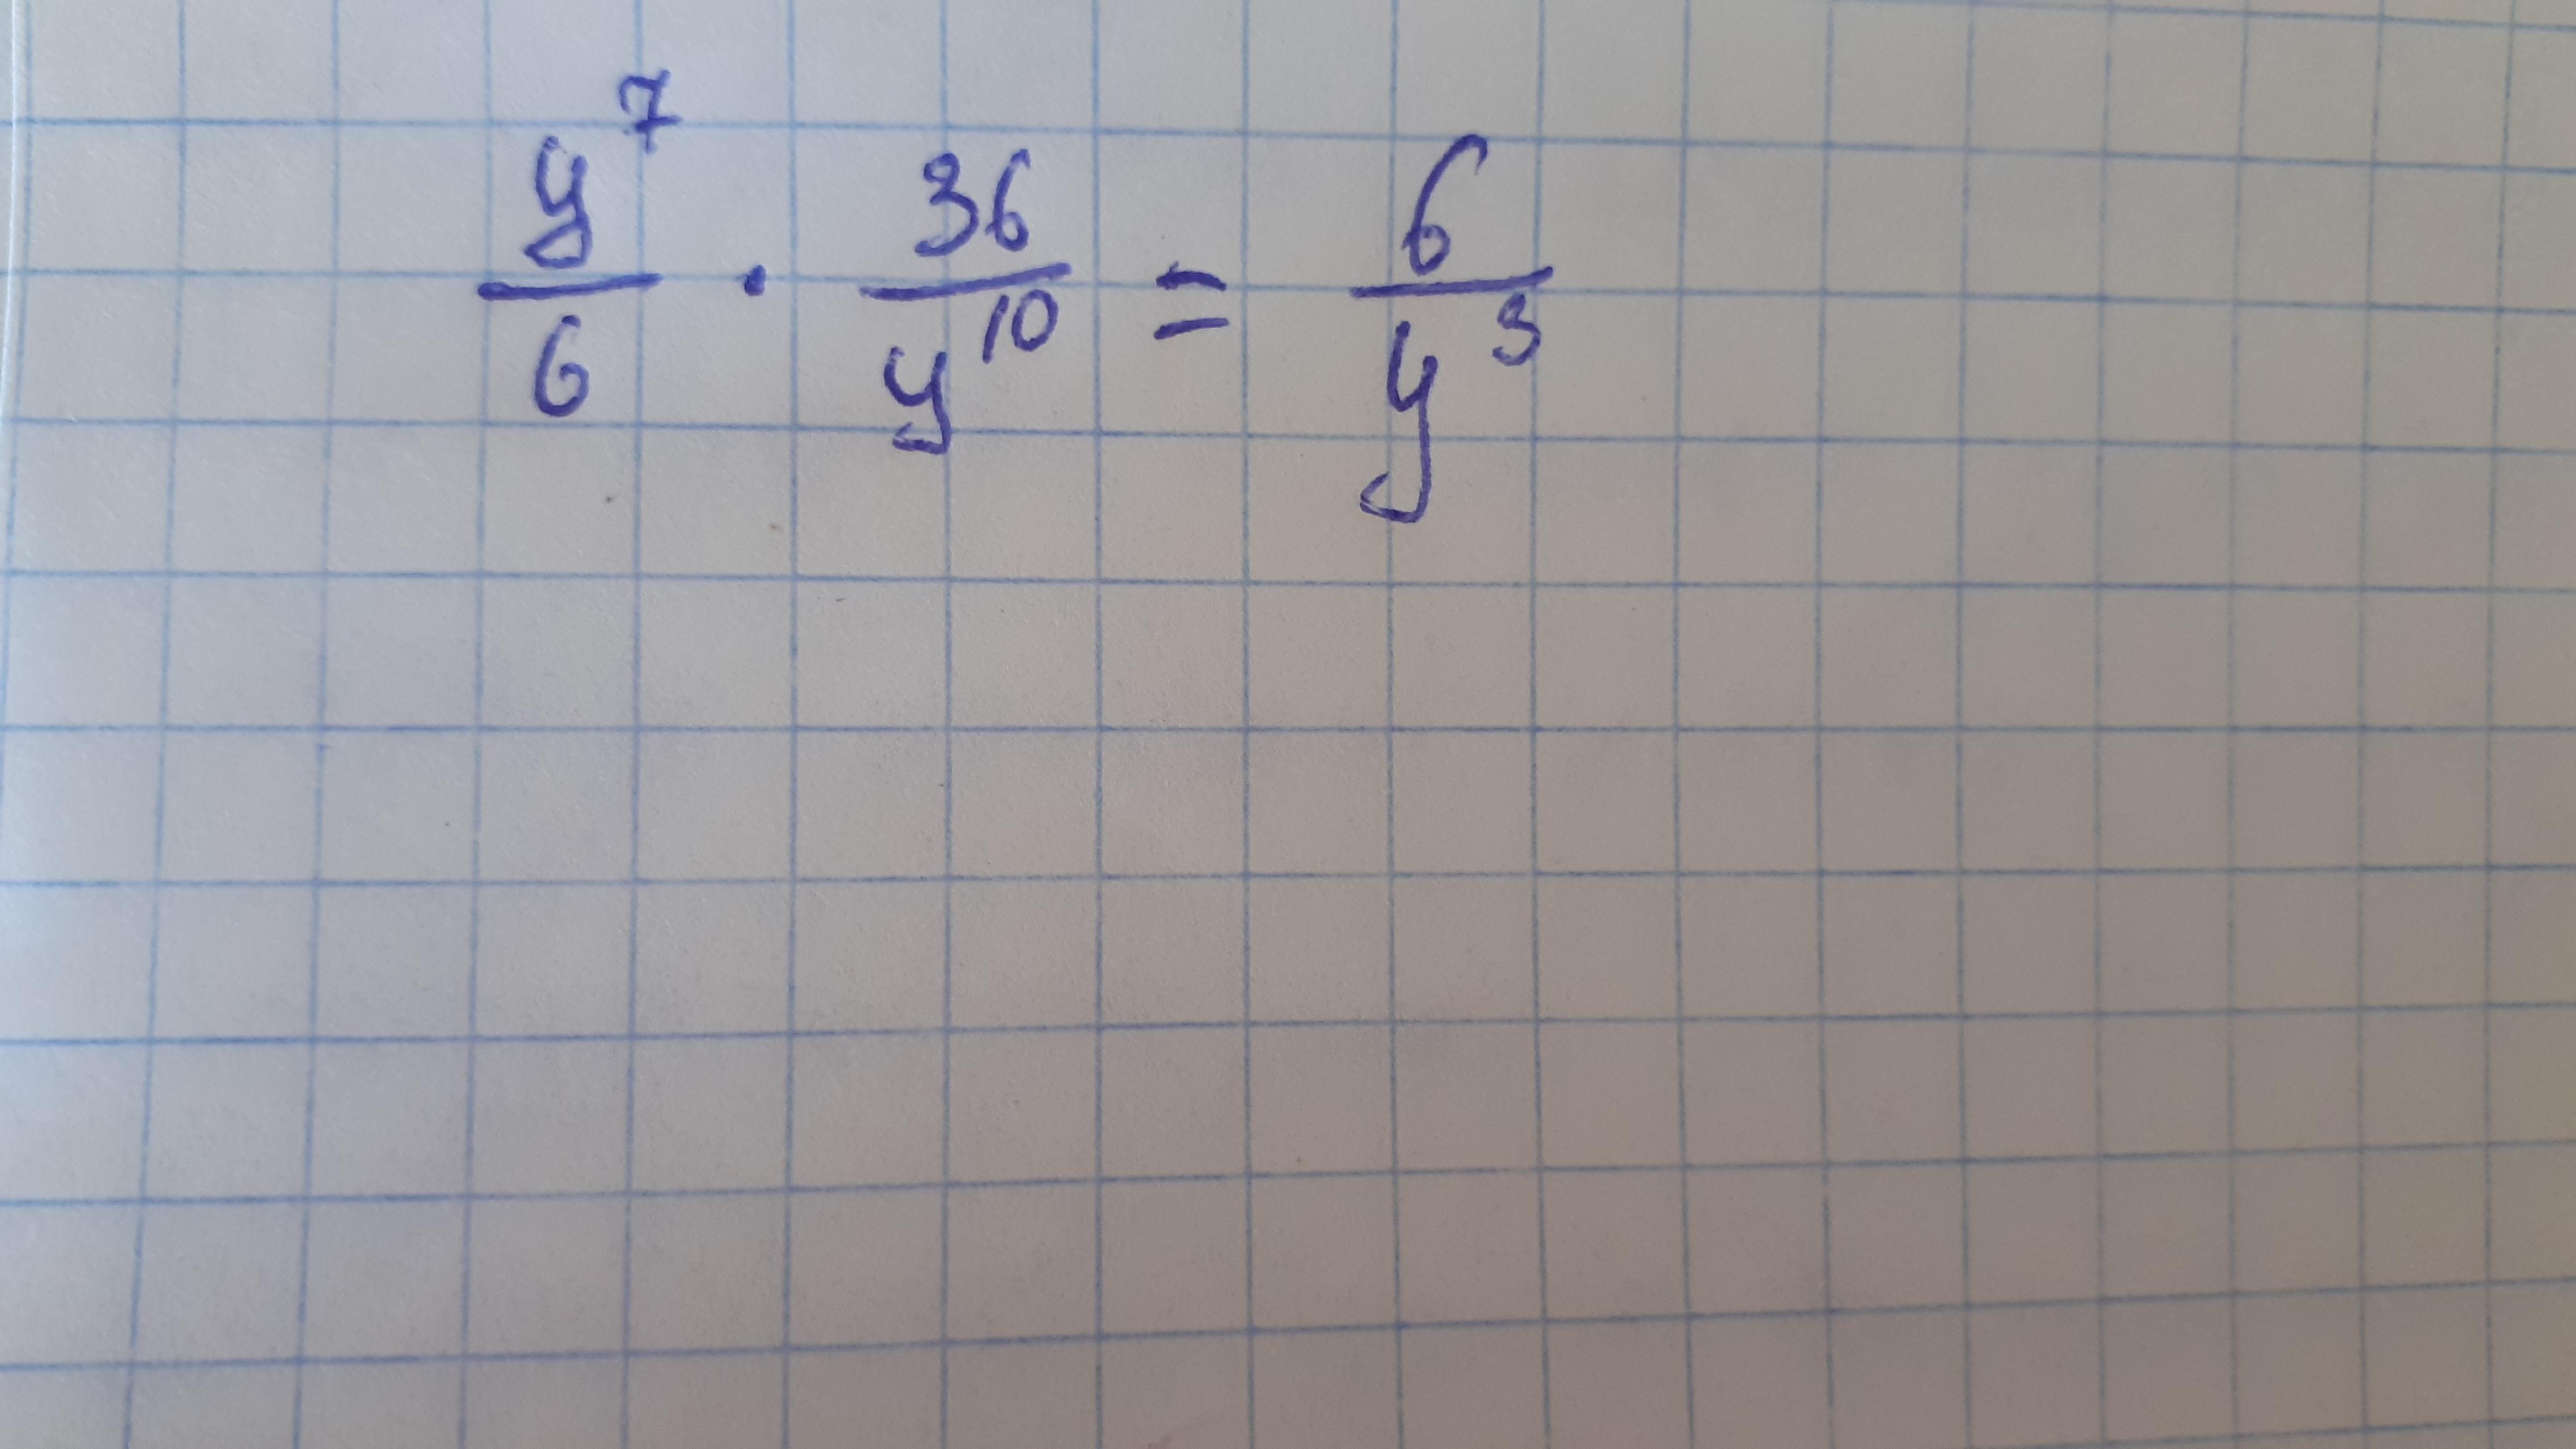 y⁷/6 · 36/y¹⁰ = 6/y³